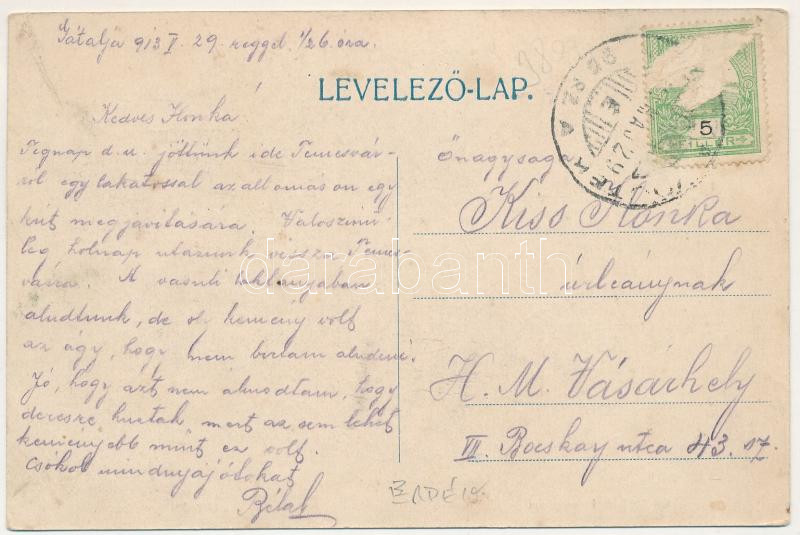 Gátalja 913 V. 29. reggel 1/26 óra.
LEVELEZŐ-LAP.
Kedves Ilonka!
Tegnap d.u. jöttünk ide Temesvár-
ról egy lakatossal az allomáson egy
kút megjavitására. Valoszinü-
leg holnap utazunk vissza Temes-
várra. A vasuti laktanyában
aludtunk, de oly kemény volt
az ágy, hogy nem birtam aludni.
Jó, hogy azt nem álmodtam, hogy
deresre huztak, mert az sem lehet
keményebb mint ez volt.
Csókol mindnyájótokat
Béla
5
FILLÉR
Őnagysága
Kiss Ilonka
úrleánynak
H. M. Vásárhely
III. Bocskay utca 43. sz.
ERDÉLY
darabanth